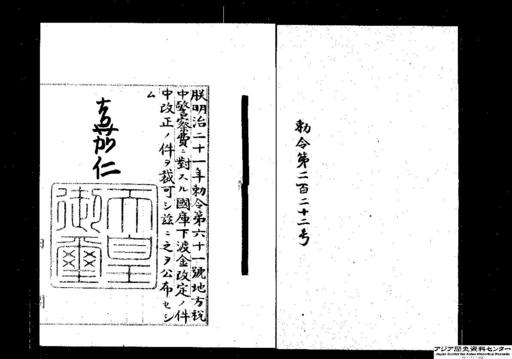 勅令第二百二十二号
朕明治二十一年勅令第六十一號地方税
中警察費ニ對スル國庫下渡金改定ノ件
中改正ノ件ヲ裁可シ茲ニ之ヲ公布セシ
ム
嘉仁
天皇
御璽
アジア歴史資料センター
Japan Center for Asian Historical Records